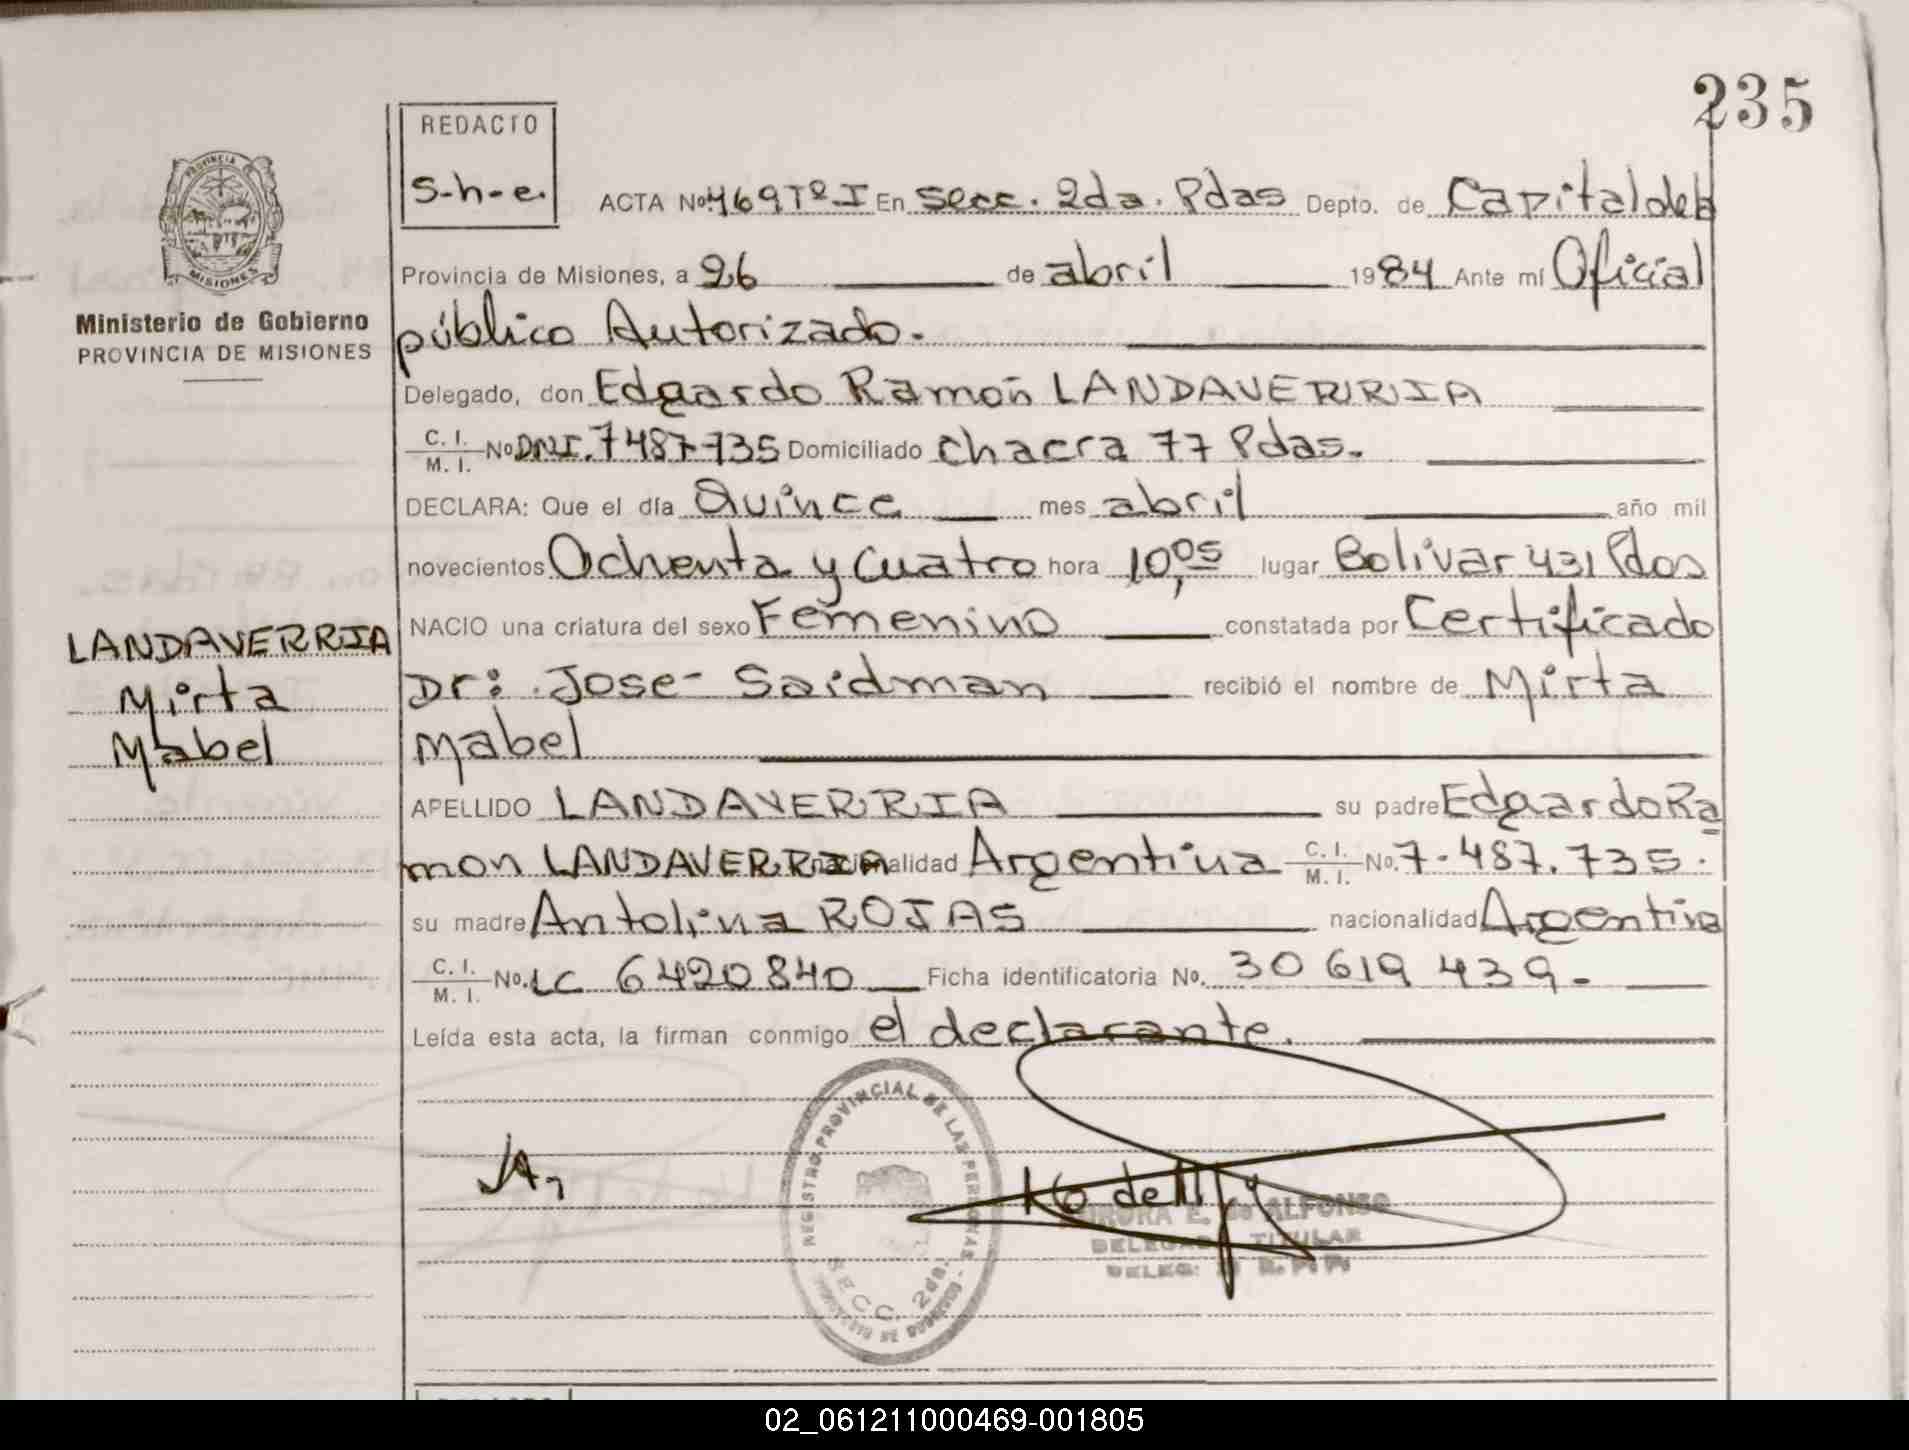 235
REDACTO
S-h-e.
ACTA Nº 469 Tº I En Secc. 2da. Pdas Depto. de Capital de la
Provincia de Misiones, a 26 de abril 1984 Ante mí Oficial
público Autorizado.
Delegado, don Edgardo Ramón LANDAVERRIA
C. I. / M. I. Nº DNI. 7487735 Domiciliado Chacra 77 Pdas.
DECLARA: Que el día Quince mes abril año mil
novecientos Ochenta y cuatro hora 10,05 lugar Bolivar 431 Pdas
NACIO una criatura del sexo Femenino constatada por Certificado
Dr: Jose Saidman recibió el nombre de Mirta
Mabel
APELLIDO LANDAVERRIA su padre Edgardo Ra
mon LANDAVERRIA nacionalidad Argentina C. I. / M. I. No. 7.487.735.
su madre Antolina ROJAS nacionalidad Argentina
C. I. / M. I. No. LC 6420840 Ficha identificatoria No. 30 619 439-
Leída esta acta, la firman conmigo el declarante.
PROVINCIA
MISIONES
Ministerio de Gobierno
PROVINCIA DE MISIONES
LANDAVERRIA
Mirta
Mabel
REGISTRO PROVINCIAL DE LAS PERSONAS
SECC. 2da.
E. de ALFONSO
TITULAR
REDACTO
02_061211000469-001805